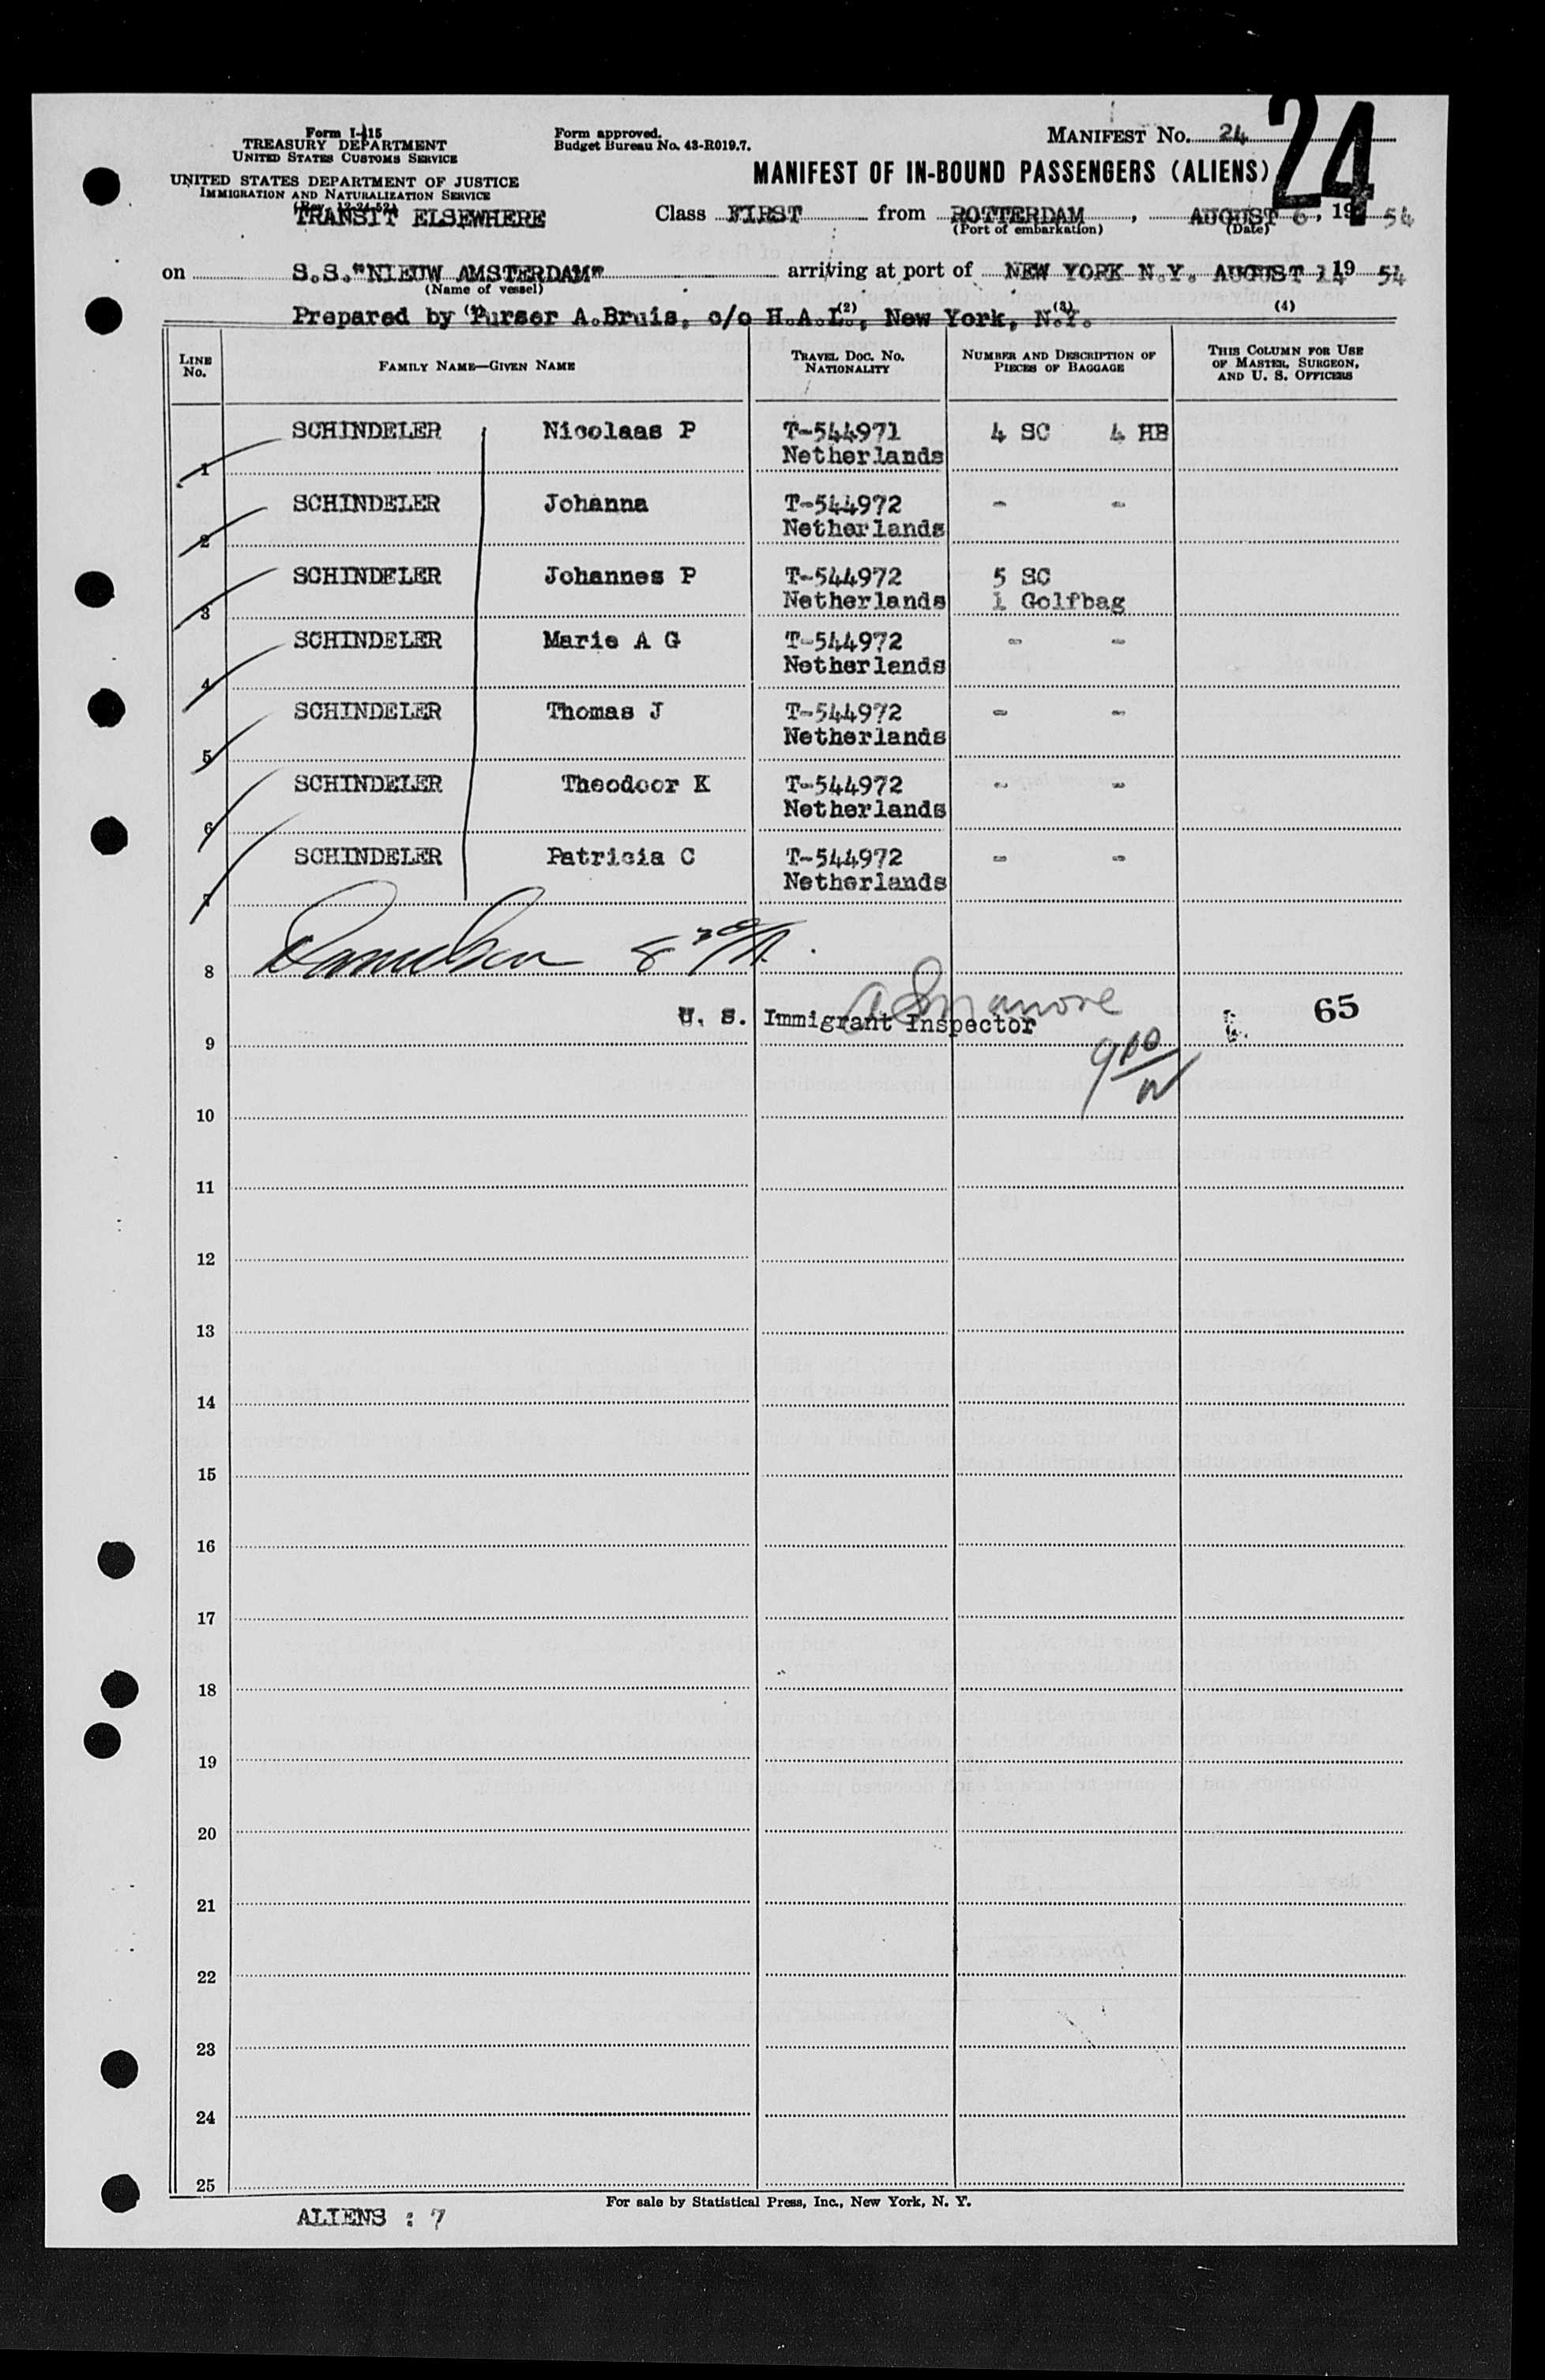 24
Form I-415
TREASURY DEPARTMENT
UNITED STATES CUSTOMS SERVICE
Form approved.
Budget Bureau No. 43-R019.7.
MANIFEST No. 24
UNITED STATES DEPARTMENT OF JUSTICE
IMMIGRATION AND NATURALIZATION SERVICE
MANIFEST OF IN-BOUND PASSENGERS (ALIENS)
(Rev. 12-24-52)
TRANSIT ELSEWHERE Class FIRST from ROTTERDAM, AUGUST 6, 1954
(Port of embarkation) (Date)
on S.S."NIEUW AMSTERDAM" arriving at port of NEW YORK N.Y. AUGUST 14 19 54
(Name of vessel)
Prepared by Purser A.Bruis, c/o H.A.L., New York, N.Y.
(2) (3) (4)
LINE No. FAMILY NAME—GIVEN NAME TRAVEL DOC. NO. NATIONALITY NUMBER AND DESCRIPTION OF PIECES OF BAGGAGE THIS COLUMN FOR USE OF MASTER, SURGEON, AND U. S. OFFICERS
SCHINDELER Nicolaas P T-544971 4 SC 4 HB
1 Netherlands
SCHINDELER Johanna T-544972 - -
2 Netherlands
SCHINDELER Johannes P T-544972 5 SC
3 Netherlands 1 Golfbag
SCHINDELER Marie A G T-544972 - -
4 Netherlands
SCHINDELER Thomas J T-544972 - -
5 Netherlands
SCHINDELER Theodoor K T-544972 - -
6 Netherlands
SCHINDELER Patricia C T-544972 - -
7 Netherlands
8
U. S. Immigrant Inspector 65
9
10
11
12
13
14
15
16
17
18
19
20
21
22
23
24
25
For sale by Statistical Press, Inc., New York, N. Y.
ALIENS : 7